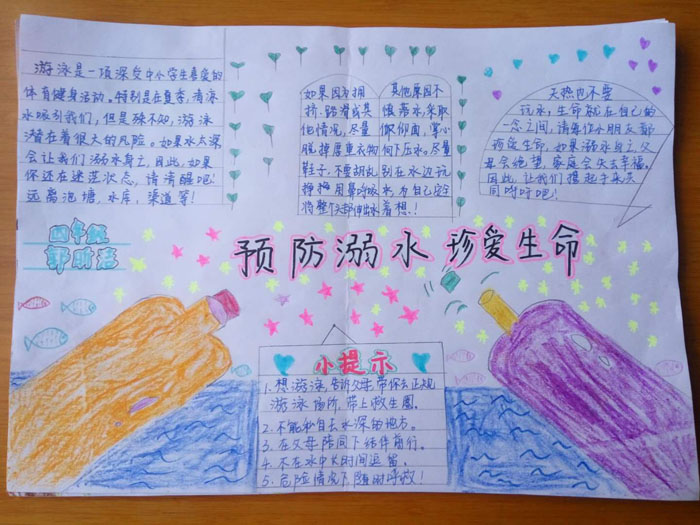 游泳是一项深受中小学生喜爱的
体育健身活动。特别是在夏季，清凉
水吸引我们，但是殊不知，游泳
潜在着很大的风险。如果水太深
会让我们溺水身亡。因此，如果
你还在迷茫状态，请清醒吧！
远离池塘，水库，渠道等！
如果因为拥
挤、踏滑或其
他情况，尽量
脱掉厚重衣物
鞋子，不要胡乱
挣扎，用鼻呼吸
将整个头部伸出水
其他原因不
慎落水，采取
仰卧面，掌心
向下压水。尽量
别在水边玩
水为自己安全
着想！
天热也不要
玩水，生命就在自己的
一念之间，请每位小朋友都
珍爱生命，如果溺水身亡，父
母会绝望，家庭会失去幸福。
因此，让我们携起手来共
同呼吁吧！
四年级
预防溺水 珍爱生命
小提示
1. 想游泳，告诉父母，带你去正规
游泳场所，带上救生圈。
2. 不能私自去水深的地方。
3. 在父母陪同下结伴前行。
4. 不在水中长时间逗留。
5. 危险情况下随时呼救！